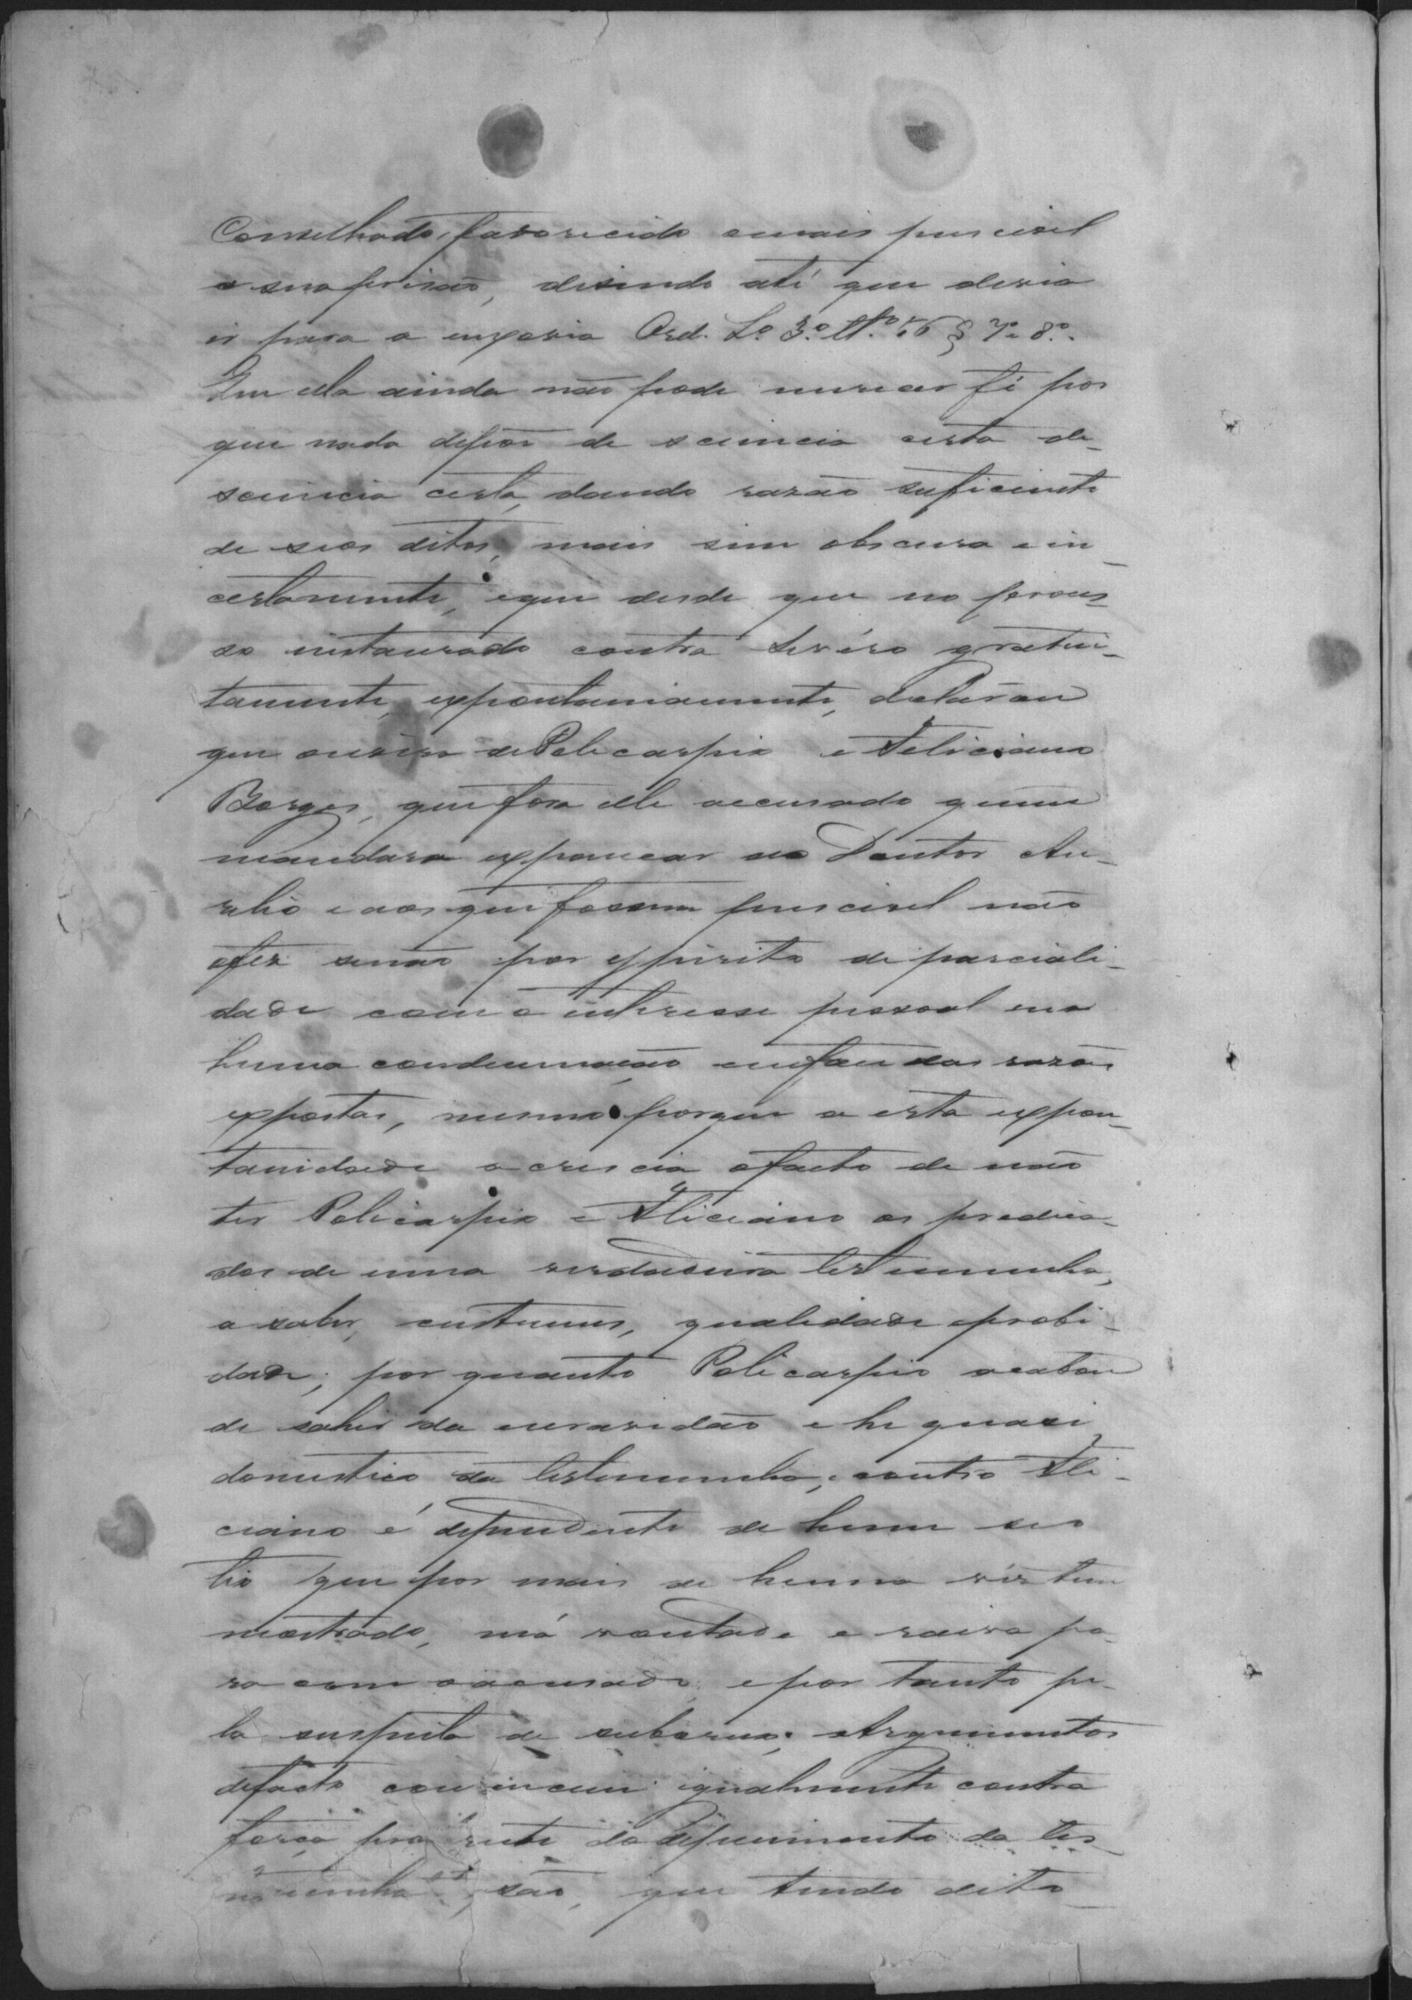 Conselhado, favorecido e mais puscivel
a sua prisão, disendo até que devia
ir para a enxovia Ord. Lº 3º ttº 56 § 7º e 8º.
Que ella ainda não pode merecer fé por
que nada depos de sciencia certa de
sciencia certa, dando razão suficiente
de seos ditos, mais sim obscura e in_
certamente, e que desde que no proces_
so instaurado contra Sevéro gratui_
tamente, expontaniamente, declarou
que ouvira de Policarpio e Feliciano
Borges, que fora elle accusado quem
mandara espancar ao Doutor Au_
relio e aos que foram puscivel não
o fez senão por espirito de parciali_
dade com o interesse pessoal na
huma condemnação em face das razões
expostas, mesmo porque a esta expon_
tanidade acrescia o facto de não
ter Policarpio e Feliciano os predica_
dos de uma verdadeira testemunha,
a saber, custumes, qualidade e probi_
dade, por quanto Policarpio acabou
de sahir da escravidão e he quasi
domestico da testemunha, e o outro Feli_
ciano é dependente de hum seo
tio que por mais de huma vêz tem
mostrado, má vontade e raiva pa_
ra com o acusado, e por tanto pe_
la suspeita de suborno. Argumentos
de facto convencem igualmente contra
força do depuimento da tes_
temunha são, que tendo dito